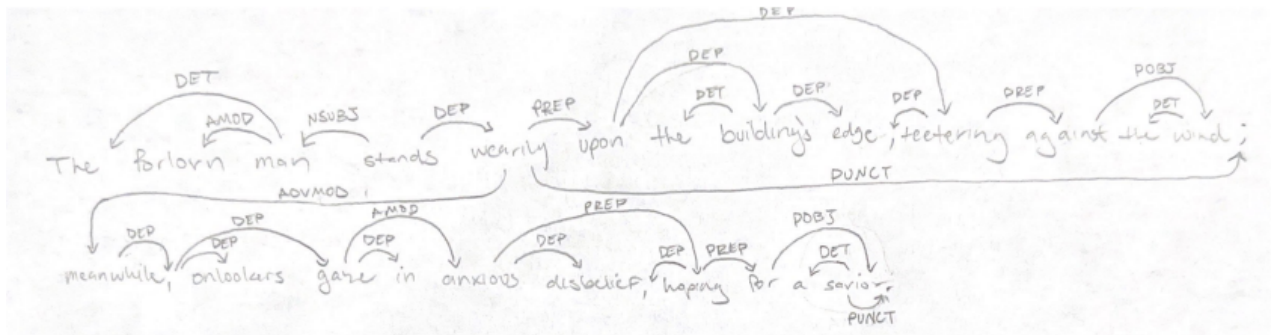 DEP
DEP POBJ
DET DET DEP DEP PREP DET
AMOD NSUBJ DEP PREP
The forlorn man stands wearily upon the building's edge, teetering against the wind;
ADVMOD PUNCT
DEP DEP AMOD PREP POBJ
DEP DEP DEP DEP PREP DET
meanwhile, onlookers gaze in anxious disbelief, hoping for a savior.
PUNCT